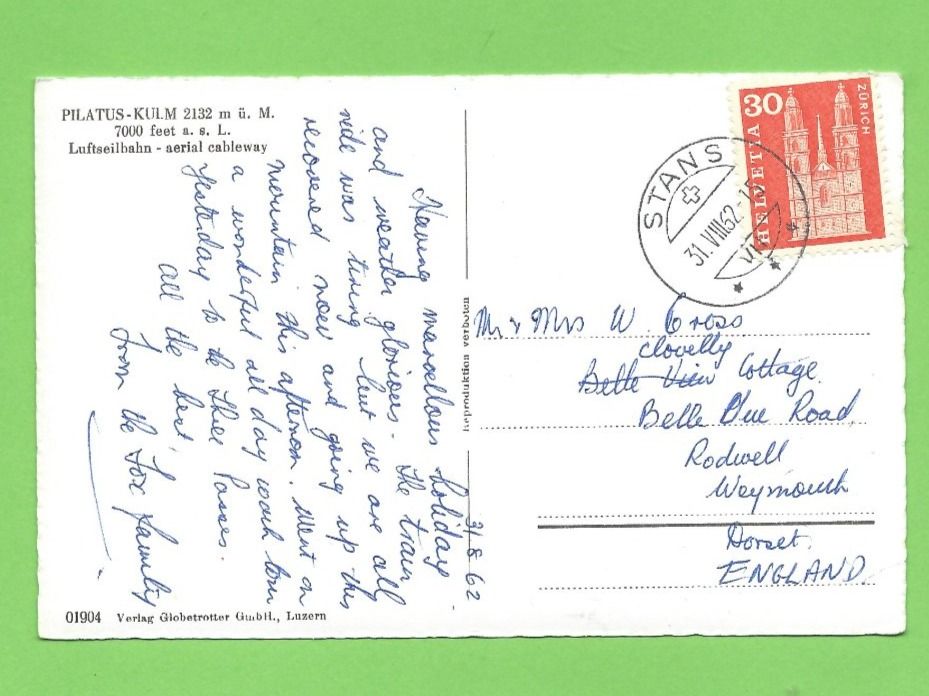 PILATUS-KULM 2132 m ü. M.
7000 feet a. s. L.
Luftseilbahn - aerial cableway
31.8.62
Having marvellous holiday
and weather glorious. The train
ride was tiring but we are all
recovered now and going up this
mountain this afternoon. Went on
a wonderful all day coach tour
yesterday to the three Passes.
All the best,
from the Fox family
01904 Verlag Globetrotter GmbH., Luzern
Reproduktion verboten
HELVETIA 30
ZÜRICH
STANS
31.VIII.62
Mr & Mrs W. Cross
Clovelly
Belle View Cottage
Belle Vue Road
Rodwell
Weymouth
Dorset.
ENGLAND